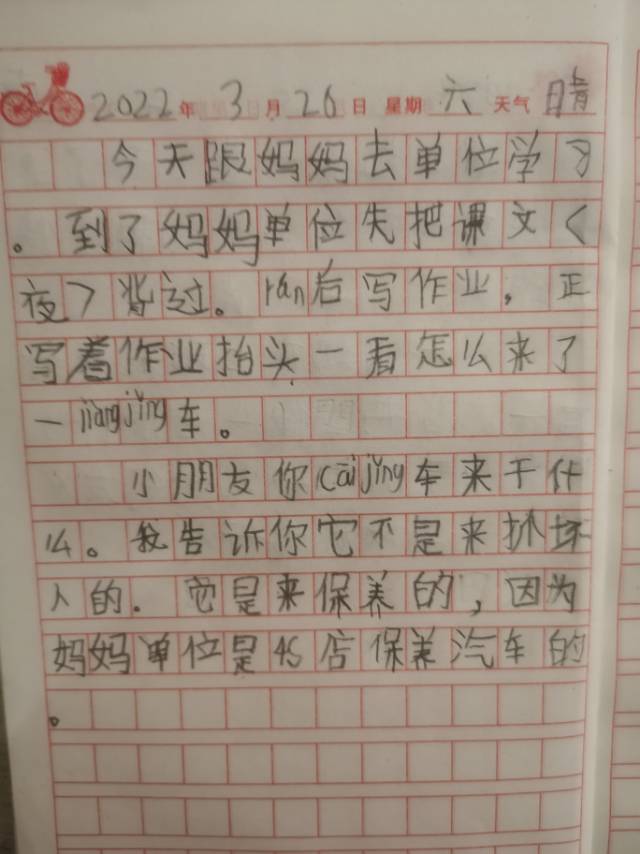 2022年3月26日 星期六 天气晴
今天跟妈妈去单位学习
。到了妈妈单位先把课文〈
夜〉背过。rán后写作业，正
写着作业抬头一看怎么来了
一jiāngjǐng车。
小朋友你cāijǐng车来干什
么。我告诉你它不是来抓坏
人的.它是来保养的，因为
妈妈单位是4S店保养汽车的
。